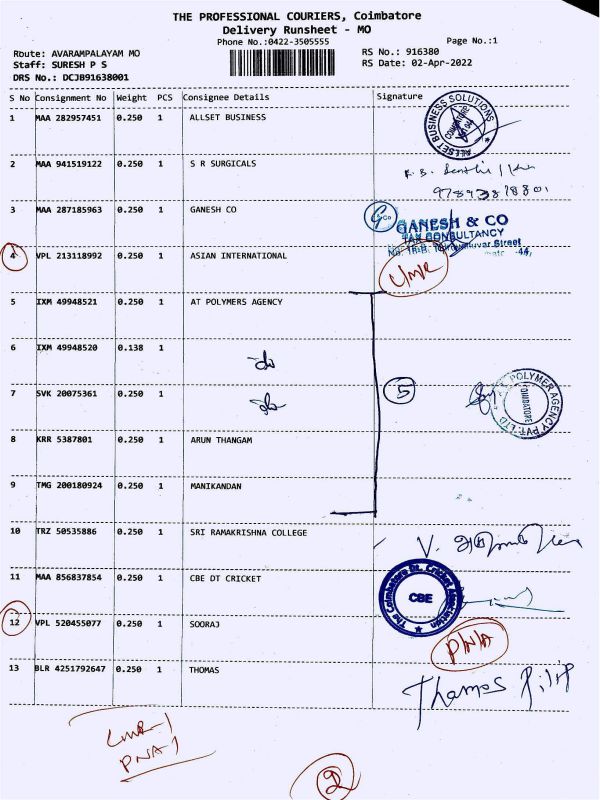 THE PROFESSIONAL COURIERS, Coimbatore
Delivery Runsheet - MO
Phone No.:0422-3505555 Page No.:1
Route: AVARAMPALAYAM MO RS No.: 916380
Staff: SURESH P S RS Date: 02-Apr-2022
DRS No.: DCJB91638001
S No Consignment No Weight PCS Consignee Details Signature
1 MAA 282957451 0.250 1 ALLSET BUSINESS
ALLSET BUSINESS SOLUTIONS
COIMBATORE
2 MAA 941519122 0.250 1 S R SURGICALS
3 MAA 287185963 0.250 1 GANESH CO
GANESH & CO
TAX CONSULTANCY
Street
4 VPL 213118992 0.250 1 ASIAN INTERNATIONAL
5 IXM 49948521 0.250 1 AT POLYMERS AGENCY
6 IXM 49948520 0.138 1 do
7 SVK 20075361 0.250 1 do
5
POLYMER AGENCY PVT. LTD
COIMBATORE
8 KRR 5387801 0.250 1 ARUN THANGAM
9 TMG 200180924 0.250 1 MANIKANDAN
10 TRZ 50535886 0.250 1 SRI RAMAKRISHNA COLLEGE
V.
11 MAA 856837854 0.250 1 CBE DT CRICKET
The Coimbatore Dt. Cricket Association
CBE
12 VPL 520455077 0.250 1 SOORAJ
PNA
13 BLR 4251792647 0.250 1 THOMAS
Thomas
PNA-1
2